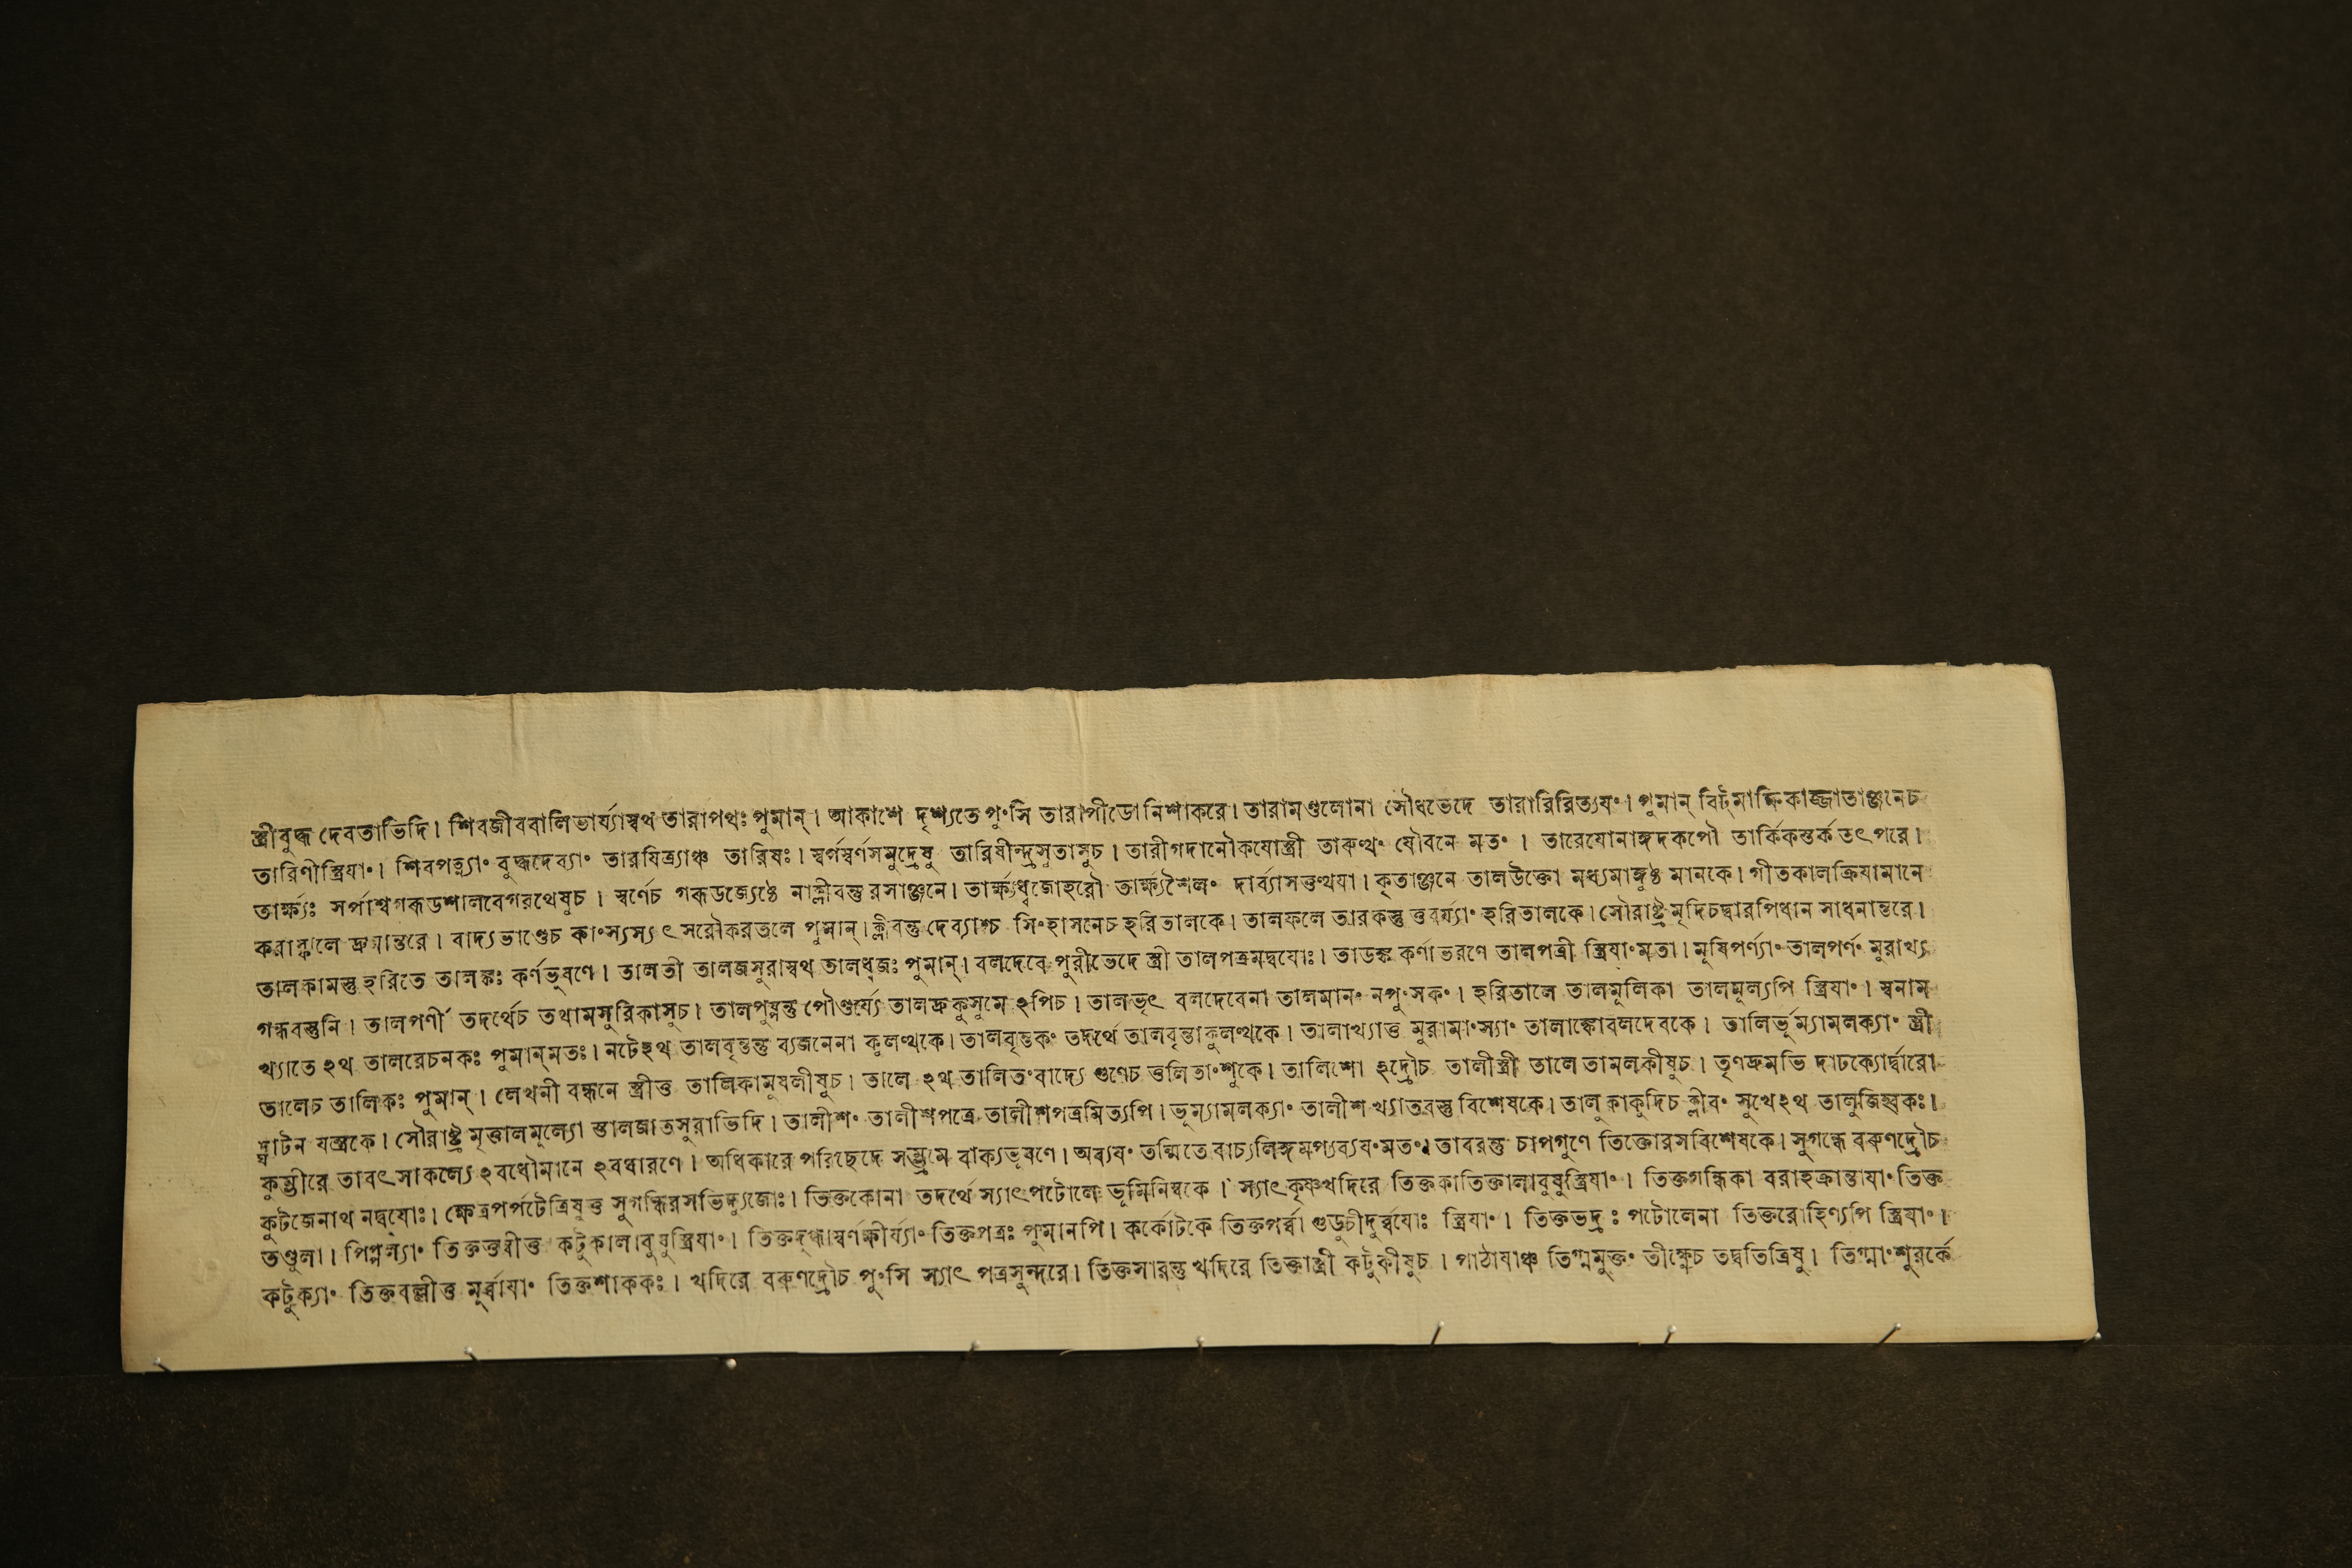 স্ত্রীবুদ্ধ দেবতাভিদি। শিবজীববালিভার্য্যাস্বথ তারাপথঃ পুমান্। আকাশে দৃশ্যতে পুংসি তারাপীডোনিশাকরে। তারামণ্ডলোনা সৌধভেদে তারারিরিত্যযং। পুমান্ বিট্মাক্ষিকাজ্জাতাঞ্জনেচ
তারিণীস্ত্রিযাং। শিবপত্ন্যাং বুদ্ধদেব্যাং তারযিত্র্যাঞ্চ তারিষঃ। স্বর্গস্বর্ণসমুদ্রেষু তারিষীন্দ্রসুতাসুচ। তারীগদানৌকযোস্ত্রী তারুণ্যং যৌবনে মতং। তারেযোনাঙ্গদকপৌ তার্কিকস্তর্ক তৎপরে।
তার্ক্ষ্যঃ সর্পাশ্বগরুডশালবেগরথেষুচ। স্বর্ণেচ গরুডজ্যেষ্ঠে নাক্লীবন্তু রসাঞ্জনে। তার্ক্ষ্যধ্বজোহরৌ তার্ক্ষ্যশৈলং দার্ব্যাসত্তুত্থযা। কৃতাঞ্জনে তালউক্তো মধ্যমাঙ্গুষ্ঠ মানকে। গীতকালক্রিযামানে
করাস্ফালে দ্রুমান্তরে। বাদ্যভাণ্ডেচ কাংস্যস্যাৎ সরৌকরতলে পুমান্। ক্লীবন্তু দেব্যাশ্চ সিংহাসনেচ হরিতালকে। তালফলে তারকন্তু ত্তুবর্য্যাং হরিতালকে। সৌরাষ্ট্র মৃদিচদ্বারপিধান সাধনান্তরে।
তালকামস্তু হরিতে তালঙ্কঃ কর্ণভূষণে। তালতী তালজসুরাস্বথ তালধ্বজঃ পুমান্। বলদেবে পুরীভেদে স্ত্রী তালপত্রমদ্বযোঃ। তাডঙ্ক কর্ণাভরণে তালপত্রী স্ত্রিযাংমতা। মূষিপর্ণ্যাং তালপর্ণং মুরাখ্য
গন্ধবস্তুনি। তালপর্ণী তদর্থেচ তথামসুরিকাসুচ। তালপুষ্পন্তু পৌণ্ডর্য্যে তালদ্রুকুসুমে ঽপিচ। তালভৃৎ বলদেবেনা তালমানং নপুংসকং। হরিতালে তালমূলিকা তালমূল্যপি স্ত্রিযাং। স্বনাম
খ্যাতে ঽথ তালরেচনকঃ পুমান্মতঃ। নটেঽথ তালবৃন্তন্তু ব্যজনেনা কুলত্থকে। তালবৃন্তকং তদর্থে তালবৃন্তাকুলত্থকে। তালাখ্যাত্ত মুরামাংস্যাং তালাঙ্কোবলদেবকে। তালির্ভূম্যামলক্যাং স্ত্রী
তালেচ তালিকঃ পুমান্। লেখনী বন্ধনে স্ত্রীত্ত তালিকামুষলীষুচ। তালে ঽথ তালিতংবাদ্যে গুণেচ ত্তলিতাংশুকে। তালিশো ঽদ্রৌচ তালীস্ত্রী তালে তামলকীষুচ। তৃণদ্রুমভি দাঢক্যোর্দ্বারো
দ্ঘাটন যন্ত্রকে। সৌরাষ্ট্র মৃত্তালমূল্যো স্তালজাতসুরাভিদি। তালীশং তালীশপত্রে তালীশপত্রমিত্যপি। ভূম্যামলক্যাং তালীশখ্যাতবস্তু বিশেষকে। তালুকাকুদিচ ক্লীবং সুখেঽথ তালুজিহ্বকঃ।
কুম্ভীরে তাবৎসাকল্যে ঽবধৌমানে ঽবধারণে। অধিকারে পরিছেদে সম্ভ্রমে বাক্যভূষণে। অব্যযং তন্মিতে বাচ্যলিঙ্গমপ্যব্যযংমতং। তাবরন্তু চাপগুণে তিক্তোরসবিশেষকে। সুগন্ধে বরুণদ্রৌচ
কুটজেনাথ নদ্বযোঃ। ক্ষেত্রপর্পটেত্রিষুত্ত সুগন্ধিরসভিদ্যুজোঃ। তিক্তকোনা তদর্থে স্যাৎপটোলে ভূমিনিম্বকে। স্যাৎকৃষ্ণখদিরে তিক্তকাতিক্তালাবুষুস্ত্রিযাং। তিক্তগন্ধিকা বরাহক্রান্তাযাং তিক্ত
তণ্ডুলা। পিপ্পল্যাং তিক্তত্তুবীত্ত কটুকালাবুষুস্ত্রিযাং। তিক্তদুগ্ধাস্বর্ণক্ষীর্য্যাং তিক্তপত্রঃ পুমানপি। কর্কোটকে তিক্তপর্ব্বা গুডুচীদুর্ব্বযোঃ স্ত্রিযাং। তিক্তভদ্রঃ পটোলেনা তিক্তরোহিণ্যপি স্ত্রিযাং।
কটুক্যাং তিক্তবল্লীত্ত মূর্ব্বাযাং তিক্তশাককঃ। খদিরে বরুণদ্রৌচ পুংসি স্যাৎ পত্রসুন্দরে। তিক্তসারন্তু খদিরে তিক্তাস্ত্রী কটুকীষুচ। পাঠাযাঞ্চ তিগ্মমুক্তং তীক্ষ্ণেচ তদ্বতিত্রিষু। তিগ্মাংশুরর্কে